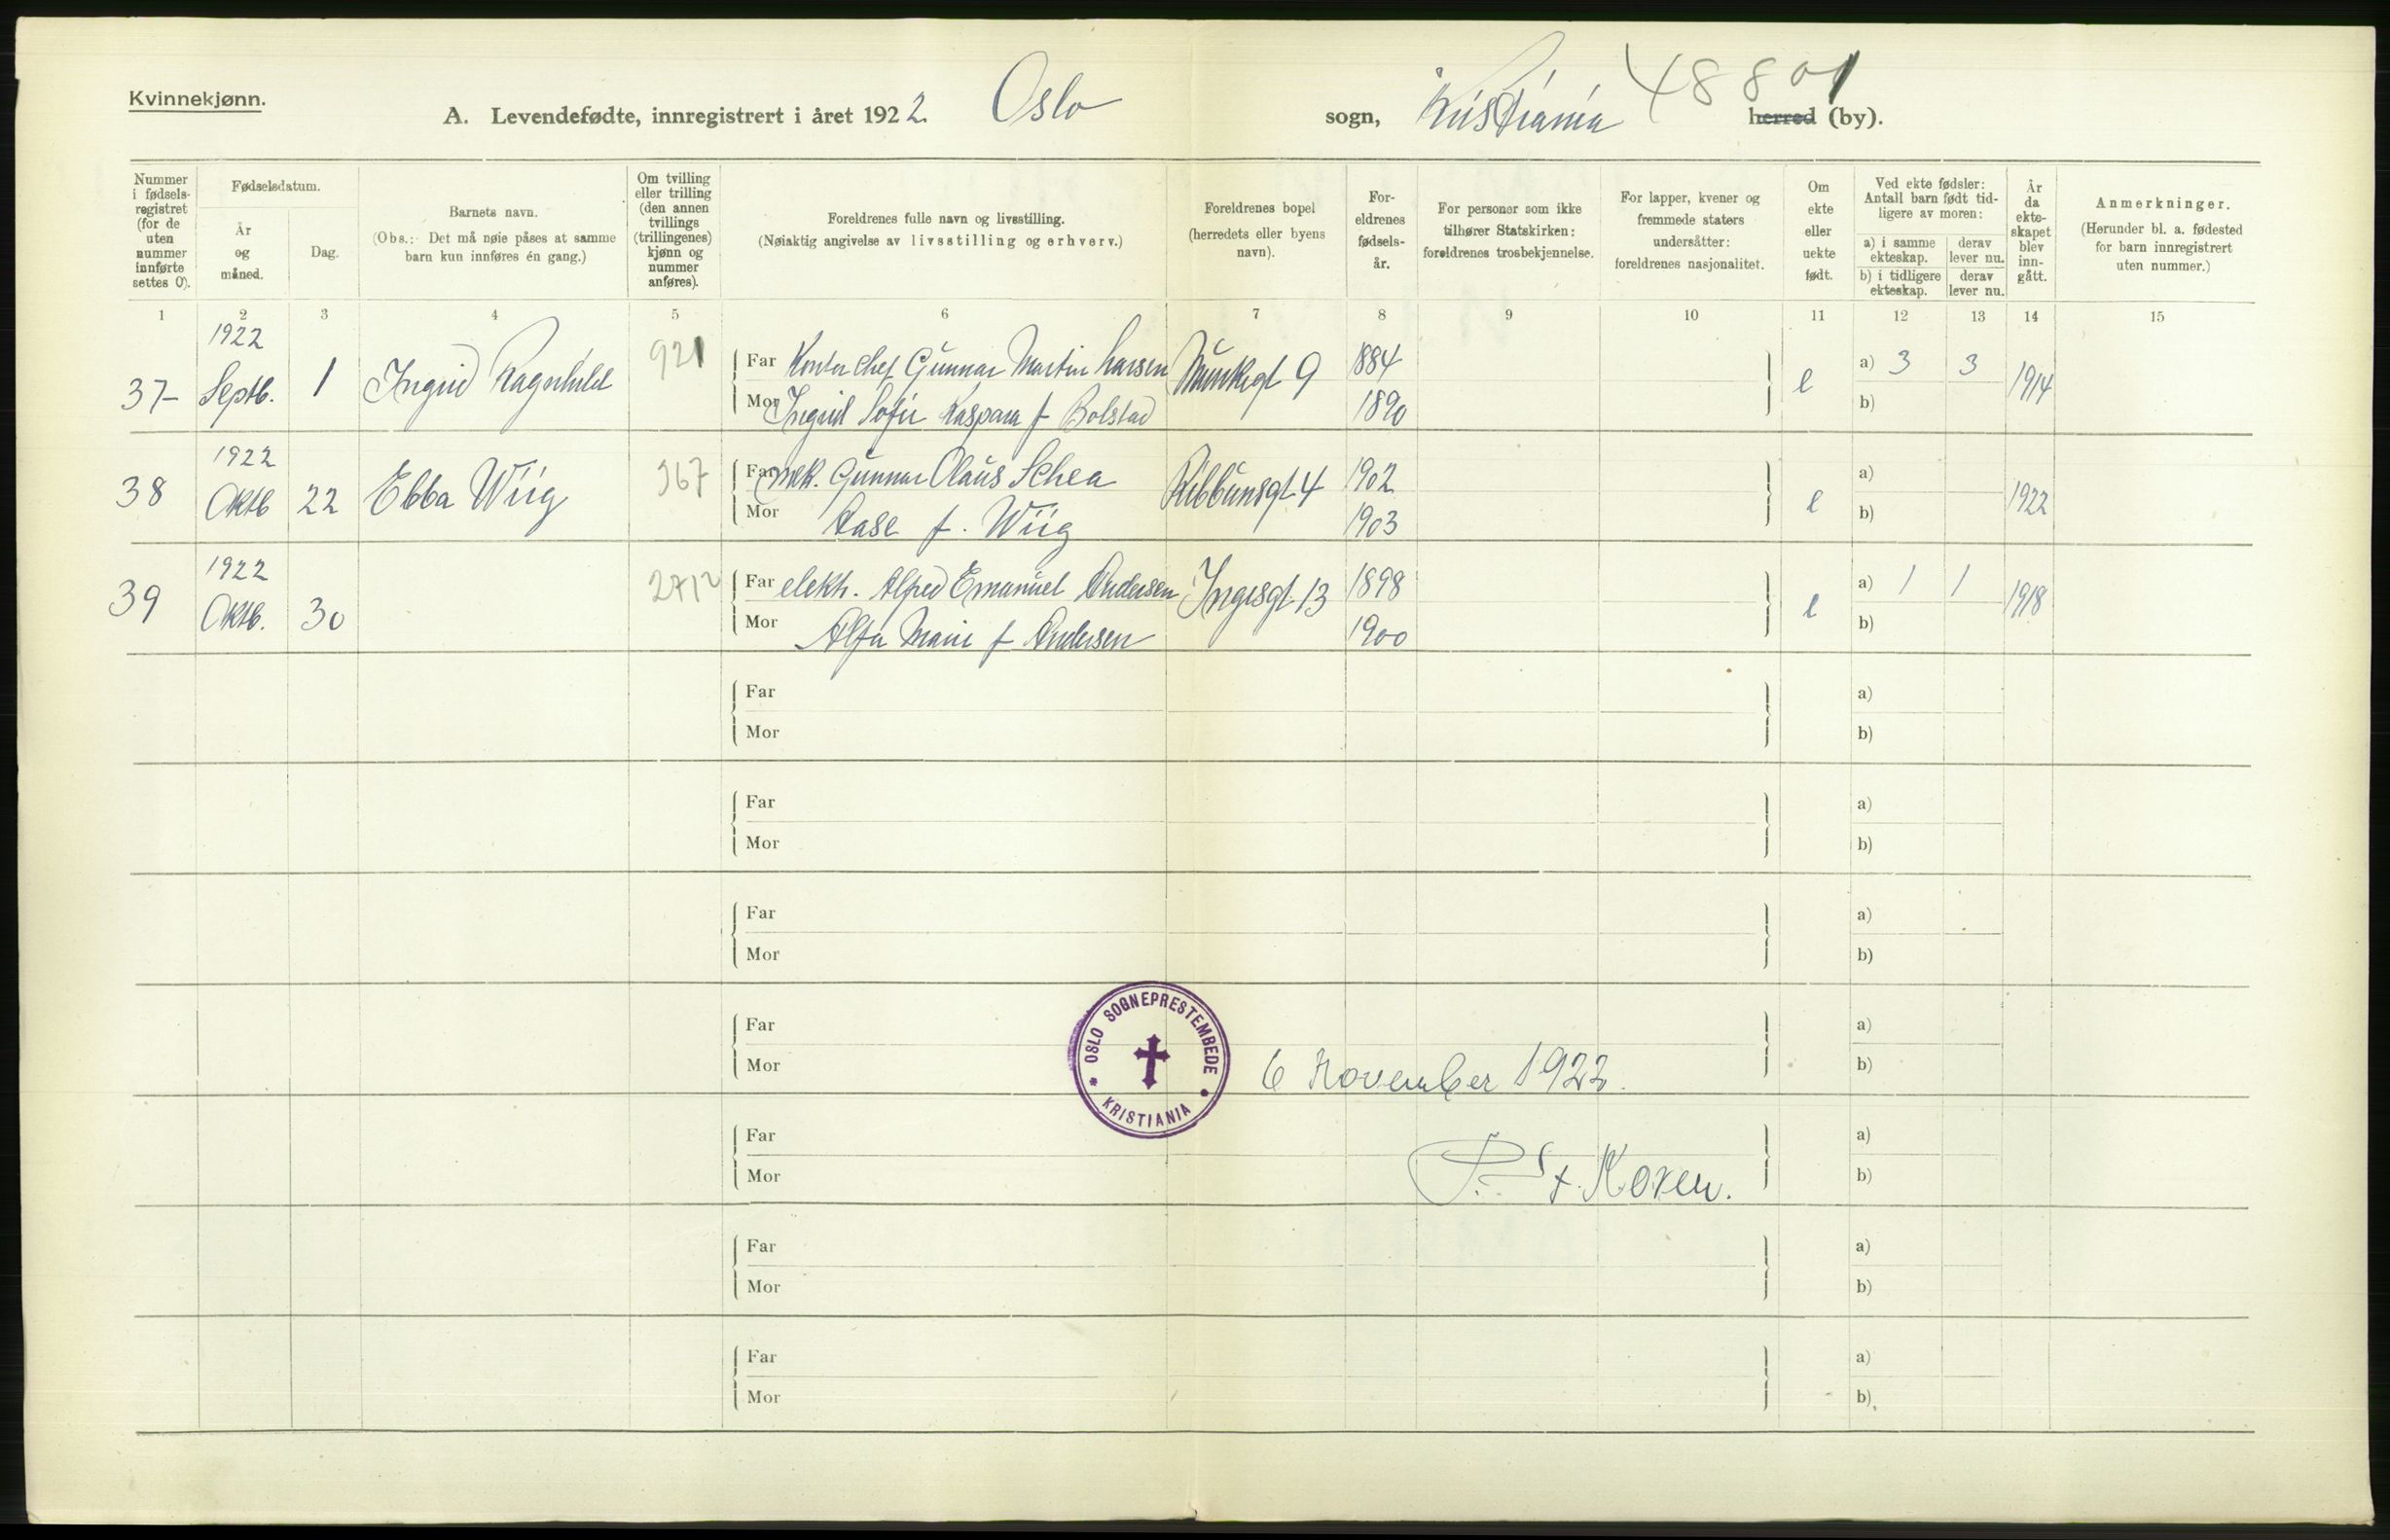 Kvinnekjønn.
A. Levendefødte, innregistrert i året 1922. Oslo sogn, Kristiania herred (by).
48801
Nummer i fødselsregistret (for de uten nummer innførte settes 0).
Fødselsdatum.
År og måned.
Dag.
Barnets navn.
(Obs.: Det må nøie påses at samme barn kun innføres én gang.)
Om tvilling eller trilling (den annen tvillings (trillingenes) kjønn og nummer anføres).
Foreldrenes fulle navn og livsstilling.
(Nøiaktig angivelse av livsstilling og erhverv.)
Foreldrenes bopel (herredets eller byens navn).
Foreldrenes fødselsår.
For personer som ikke tilhører Statskirken: foreldrenes trosbekjennelse.
For lapper, kvener og fremmede staters undersåtter: foreldrenes nasjonalitet.
Om ekte eller uekte født.
Ved ekte fødsler: Antall barn født tidligere av moren:
a) i samme ekteskap. derav lever nu.
b) i tidligere ekteskap. derav lever nu.
År da ekteskapet blev inngått.
Anmerkninger.
(Herunder bl. a. fødested for barn innregistrert uten nummer.)
1 2 3 4 5 6 7 8 9 10 11 12 13 14 15
37 1922 Septb. 1 Ingrid Ragnhild 921 Far Kontorchef Gunnar Martin Larsen Munkegt 9 1884 e a) 3 3 1914
Mor Ingrid Sofie Kaspara f Bolstad 1890 b)
38 1922 Oktb 22 Ebba Wiig 367 Far mek. Gunnar Claus Schea Ribbungt 4 1902 e a) 1922
Mor Aase f. Wiig 1903 b)
39 1922 Oktb. 30 2712 Far elektr. Alfred Emanuel Andersen Ingesgt 13 1898 e a) 1 1 1918
Mor Marie f Andersen 1900 b)
Far a)
Mor b)
Far a)
Mor b)
Far a)
Mor b)
Far a)
Mor b)
OSLO SOGNEPRESTEMBEDE
KRISTIANIA
6 November 1922.
Far a)
Mor b)
Koren.
Far a)
Mor b)
Far a)
Mor b)